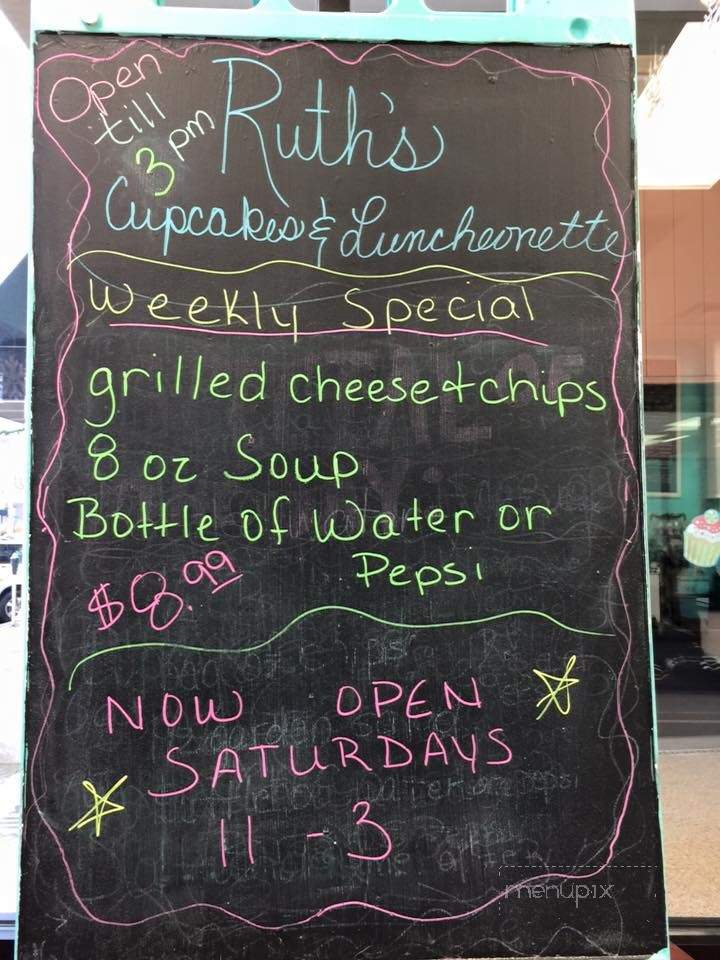 Open
till
3 pm
Ruth's
Cupcakes & Luncheonette
Weekly Special
grilled cheese + chips
8 oz Soup
Bottle of Water or
Pepsi
$8.99
NOW OPEN
SATURDAYS
11 - 3
menupix